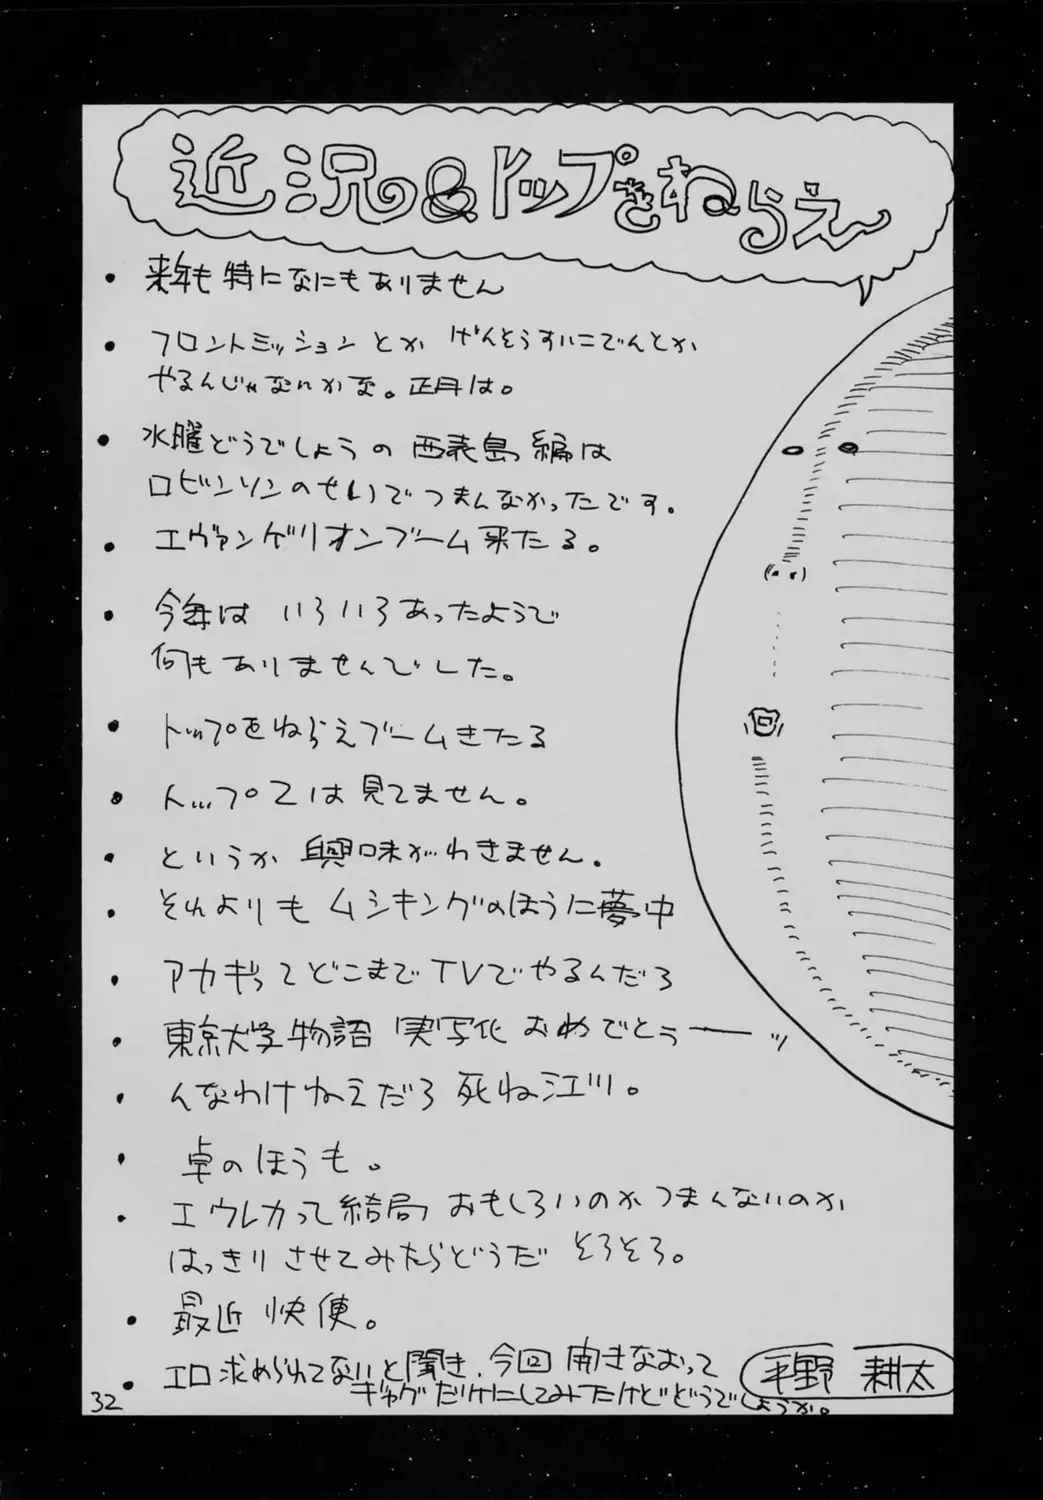 近況の&トップをねらえ〜
・来年も特になにもありません
・フロントミッションとか げんそうすいこでんとか
やるんじゃないかな。正月は。
・水曜どうでしょうの 西表島編は
ロビンソンのせいでつまんなかったです。
・エヴァンゲリオンブーム来たる。
・今年は いろいろあったようで
何もありませんでした。
・トップをねらえブームきたる
・トップ2は見てません。
・というか 興味がわきません。
・それよりも ムシキングのほうに夢中
・アカギってどこまでTVでやるんだろ
・東京大学物語 実写化 おめでとうーーッ
・んなわけねえだろ 死ね江川。
・卓のほうも。
・エウレカって結局 おもしろいのかつまんないのか
はっきりさせてみたらどうだ そろそろ。
・最近 快便。
・エロ求められてないと聞き、今回 開きなおって
ギャグだけにしてみたけどどうでしょうか。
平野 耕太
32